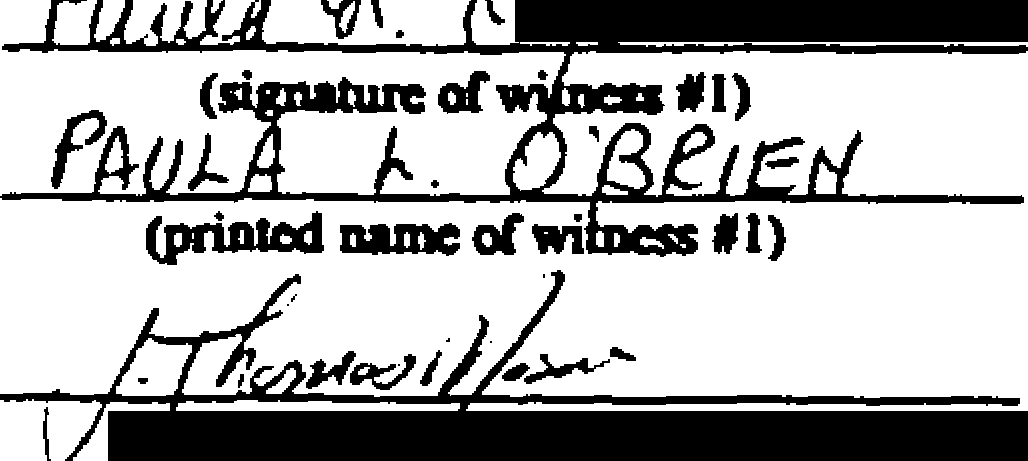 Paula L.
(signature of witness #1)
PAULA L. O'BRIEN
(printed name of witness #1)
J. Thomas